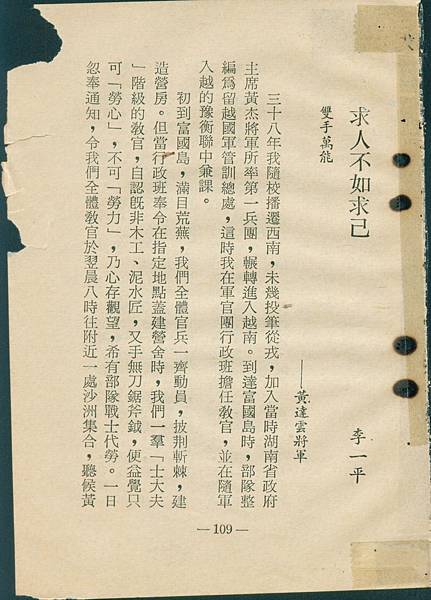 求人不如求己
李一平
雙手萬能
——黃達雲將軍
三十八年我隨校播遷西南，未幾投筆從戎，加入當時湖南省政府
主席黃杰將軍所率第一兵團，輾轉進入越南。到達富國島時，部隊整
編為留越國軍管訓總處，這時我在軍官團行政班擔任教官，並在隨軍
入越的豫衡聯中兼課。
初到富國島，滿目荒蕪，我們全體官兵一齊動員，披荆斬棘，建
造營房。但當行政班奉令在指定地點蓋建營舍時，我們一羣「士大夫
」階級的教官，自認既非木工、泥水匠，又手無刀鋸斧鉞，便益覺只
可「勞心」，不可「勞力」，乃心存觀望，希有部隊戰士代勞。一日
忽奉通知，令我們全體教官於翌晨八時往附近一處沙洲集合，聽候黃
—109—